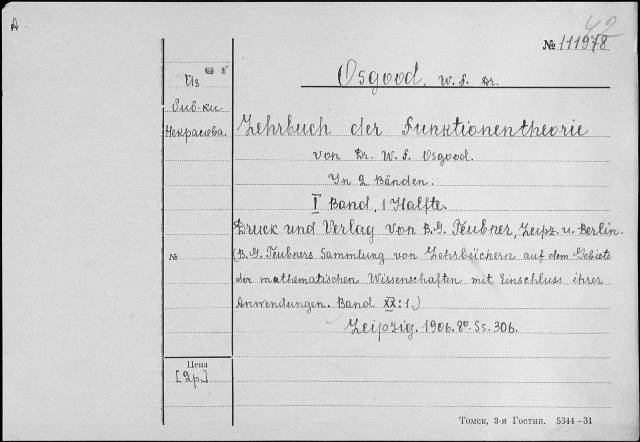 А
42
№ 111978
Osgood, W. F. Dr.
Из
биб-ки
Некрасова.
Lehrbuch der Funktionentheorie
von Dr. W. F. Osgood.
In 2 Bänden.
I Band, 1 Hälfte.
Druck und Verlag von B. G. Teubner, Leipz. u. Berlin.
(B. G. Teubners Sammlung von Lehrbüchern auf dem Gebiete
№
der mathematischen Wissenschaften mit Einschluss ihrer
Anwendungen. Band XX:1.)
Leipzig. 1906. 8º. Ss. 306.
Цена
[2р.]
Томск, 3-я Гостип. 5344—31